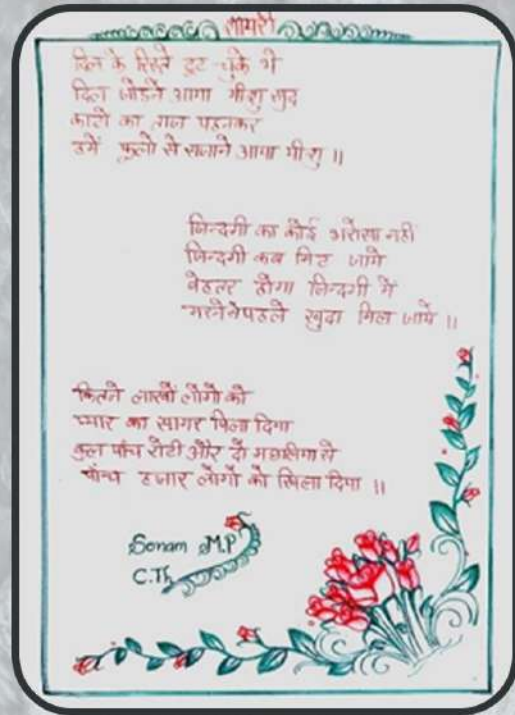 शायरी
दिल के रिस्ते टुट चुके थे
दिल जोडने आया यीशु खुद
काटो का ताज पहनकर
हमें फुलो से सजाने आया यीशु ॥
जिन्दगी का कोई भरोसा नहीं
जिन्दगी कब मिट जाये
बेहतर होगा जिन्दगी में
मरनेसेपहले खुदा मिल जाये ॥
कितने लाखों लोगो को
प्यार का सागर पिला दिया
कुल पांच रोटी और दो मछलिया से
पांच हजार लोगों को खिला दिया ॥
Sonam M.P
C.Th